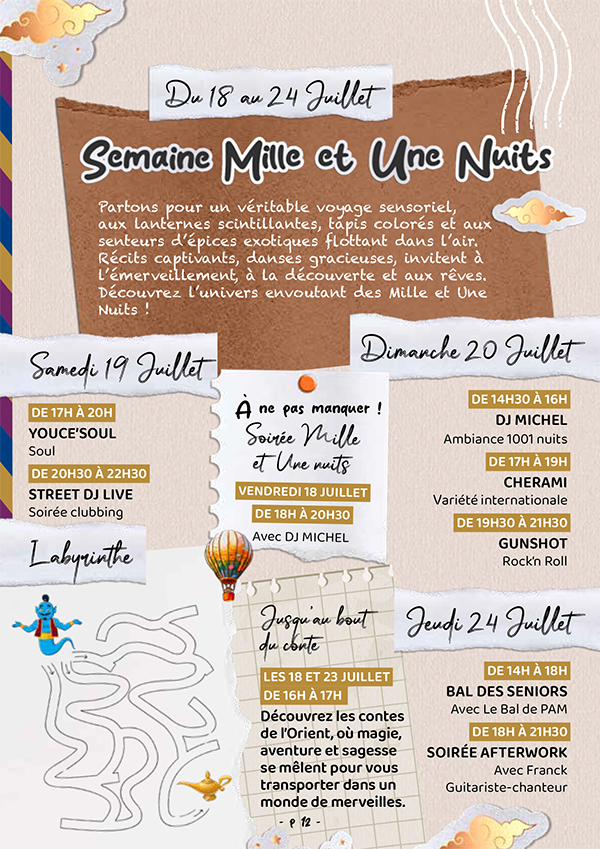 Du 18 au 24 Juillet
Semaine Mille et Une Nuits
Partons pour un véritable voyage sensoriel,
aux lanternes scintillantes, tapis colorés et aux
senteurs d'épices exotiques flottant dans l'air.
Récits captivants, danses gracieuses, invitent à
l'émerveillement, à la découverte et aux rêves.
Découvrez l'univers envoutant des Mille et Une
Nuits !
Samedi 19 Juillet
DE 17H À 20H
YOUCE'SOUL
Soul
DE 20H30 À 22H30
STREET DJ LIVE
Soirée clubbing
À ne pas manquer !
Soirée Mille
et Une nuits
VENDREDI 18 JUILLET
DE 18H À 20H30
Avec DJ MICHEL
Dimanche 20 Juillet
DE 14H30 À 16H
DJ MICHEL
Ambiance 1001 nuits
DE 17H À 19H
CHERAMI
Variété internationale
DE 19H30 À 21H30
GUNSHOT
Rock'n Roll
Labyrinthe
Jusqu'au bout
du conte
LES 18 ET 23 JUILLET
DE 16H À 17H
Découvrez les contes
de l'Orient, où magie,
aventure et sagesse
se mêlent pour vous
transporter dans un
monde de merveilles.
Jeudi 24 Juillet
DE 14H À 18H
BAL DES SENIORS
Avec Le Bal de PAM
DE 18H À 21H30
SOIRÉE AFTERWORK
Avec Franck
Guitariste-chanteur
- P 12 -